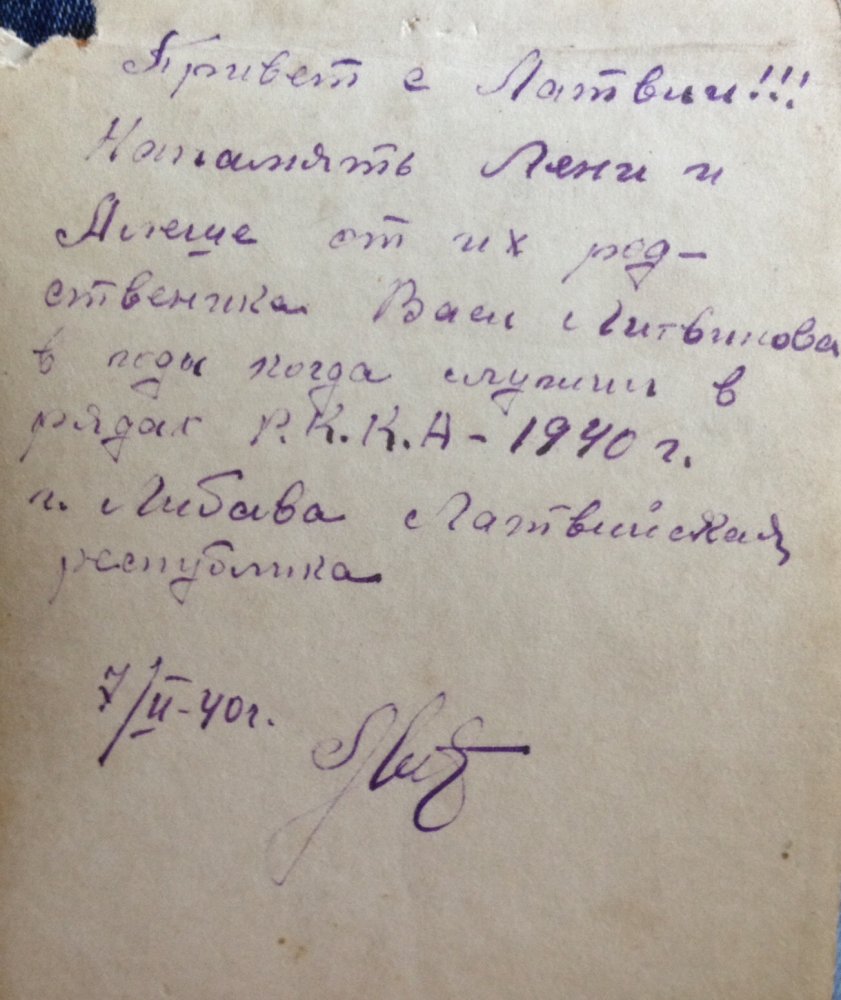 Привет с Латвии!!!
Напамять Лени и
Алеше от их род-
ственика Васи Литвинова
в годы когда служил в
рядах Р.К.К.А - 1940 г.
г. Либава Латвийская
республика
7/II-40г.